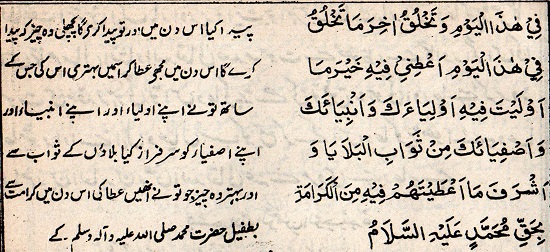 فِيْ هٰذَا الْيَوْمِ وَتَخْلُقُ اٰخِرَ مَا تَخْلُقُ
پیدا کیا اس دن میں اور تو پیدا کرے گا پچھلی وہ چیز کہ پیدا
فِيْ هٰذَا الْيَوْمِ اَعْطِنِيْ فِيْهِ خَيْرَ مَا
کرے گا اس دن میں مجھے عطا کر اسمیں بہتری اس کی جس کے
اَوْلَيْتَ فِيْهِ اَوْلِيَاءَكَ وَاَنْبِيَائَكَ
ساتھ تونے اپنے اولیاء اور اپنے انبیاء اور
وَاَصْفِيَائَكَ مِنْ ثَوَابِ الْبَلَايَا وَ
اپنے اصفیار کو سرفراز کیا بلاؤں کے ثواب سے
اَشْرَفَ مَا اَعْطَيْتَهُمْ فِيْهِ مِنَ الْكَرَامَةِ
اور بہتر وہ چیز جو تونے انھیں عطا کی اس دن میں کرامت سے
بِحَقِّ مُحَمَّدٍ عَلَيْهِ السَّلَامُ
بطفیل حضرت محمد صلی اللہ علیہ وآلہ وسلم کے